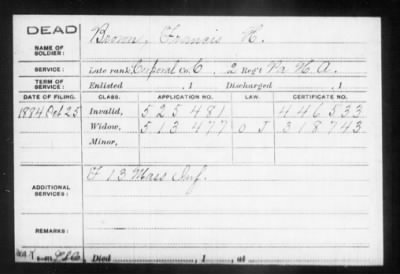 DEAD
NAME OF SOLDIER:
Brown, Francis H.
SERVICE:
Late rank Corporal Co. C, 2 Reg't Pa H. A.
TERM OF SERVICE:
Enlisted , 1 Discharged , 1
DATE OF FILING. CLASS. APPLICATION NO. LAW. CERTIFICATE NO.
1884 Oct 25 Invalid, 525481 446533
Widow, 513477 O J 318743
Minor,
ADDITIONAL SERVICES:
F 13 Mass Inf.
Died , 1 , at